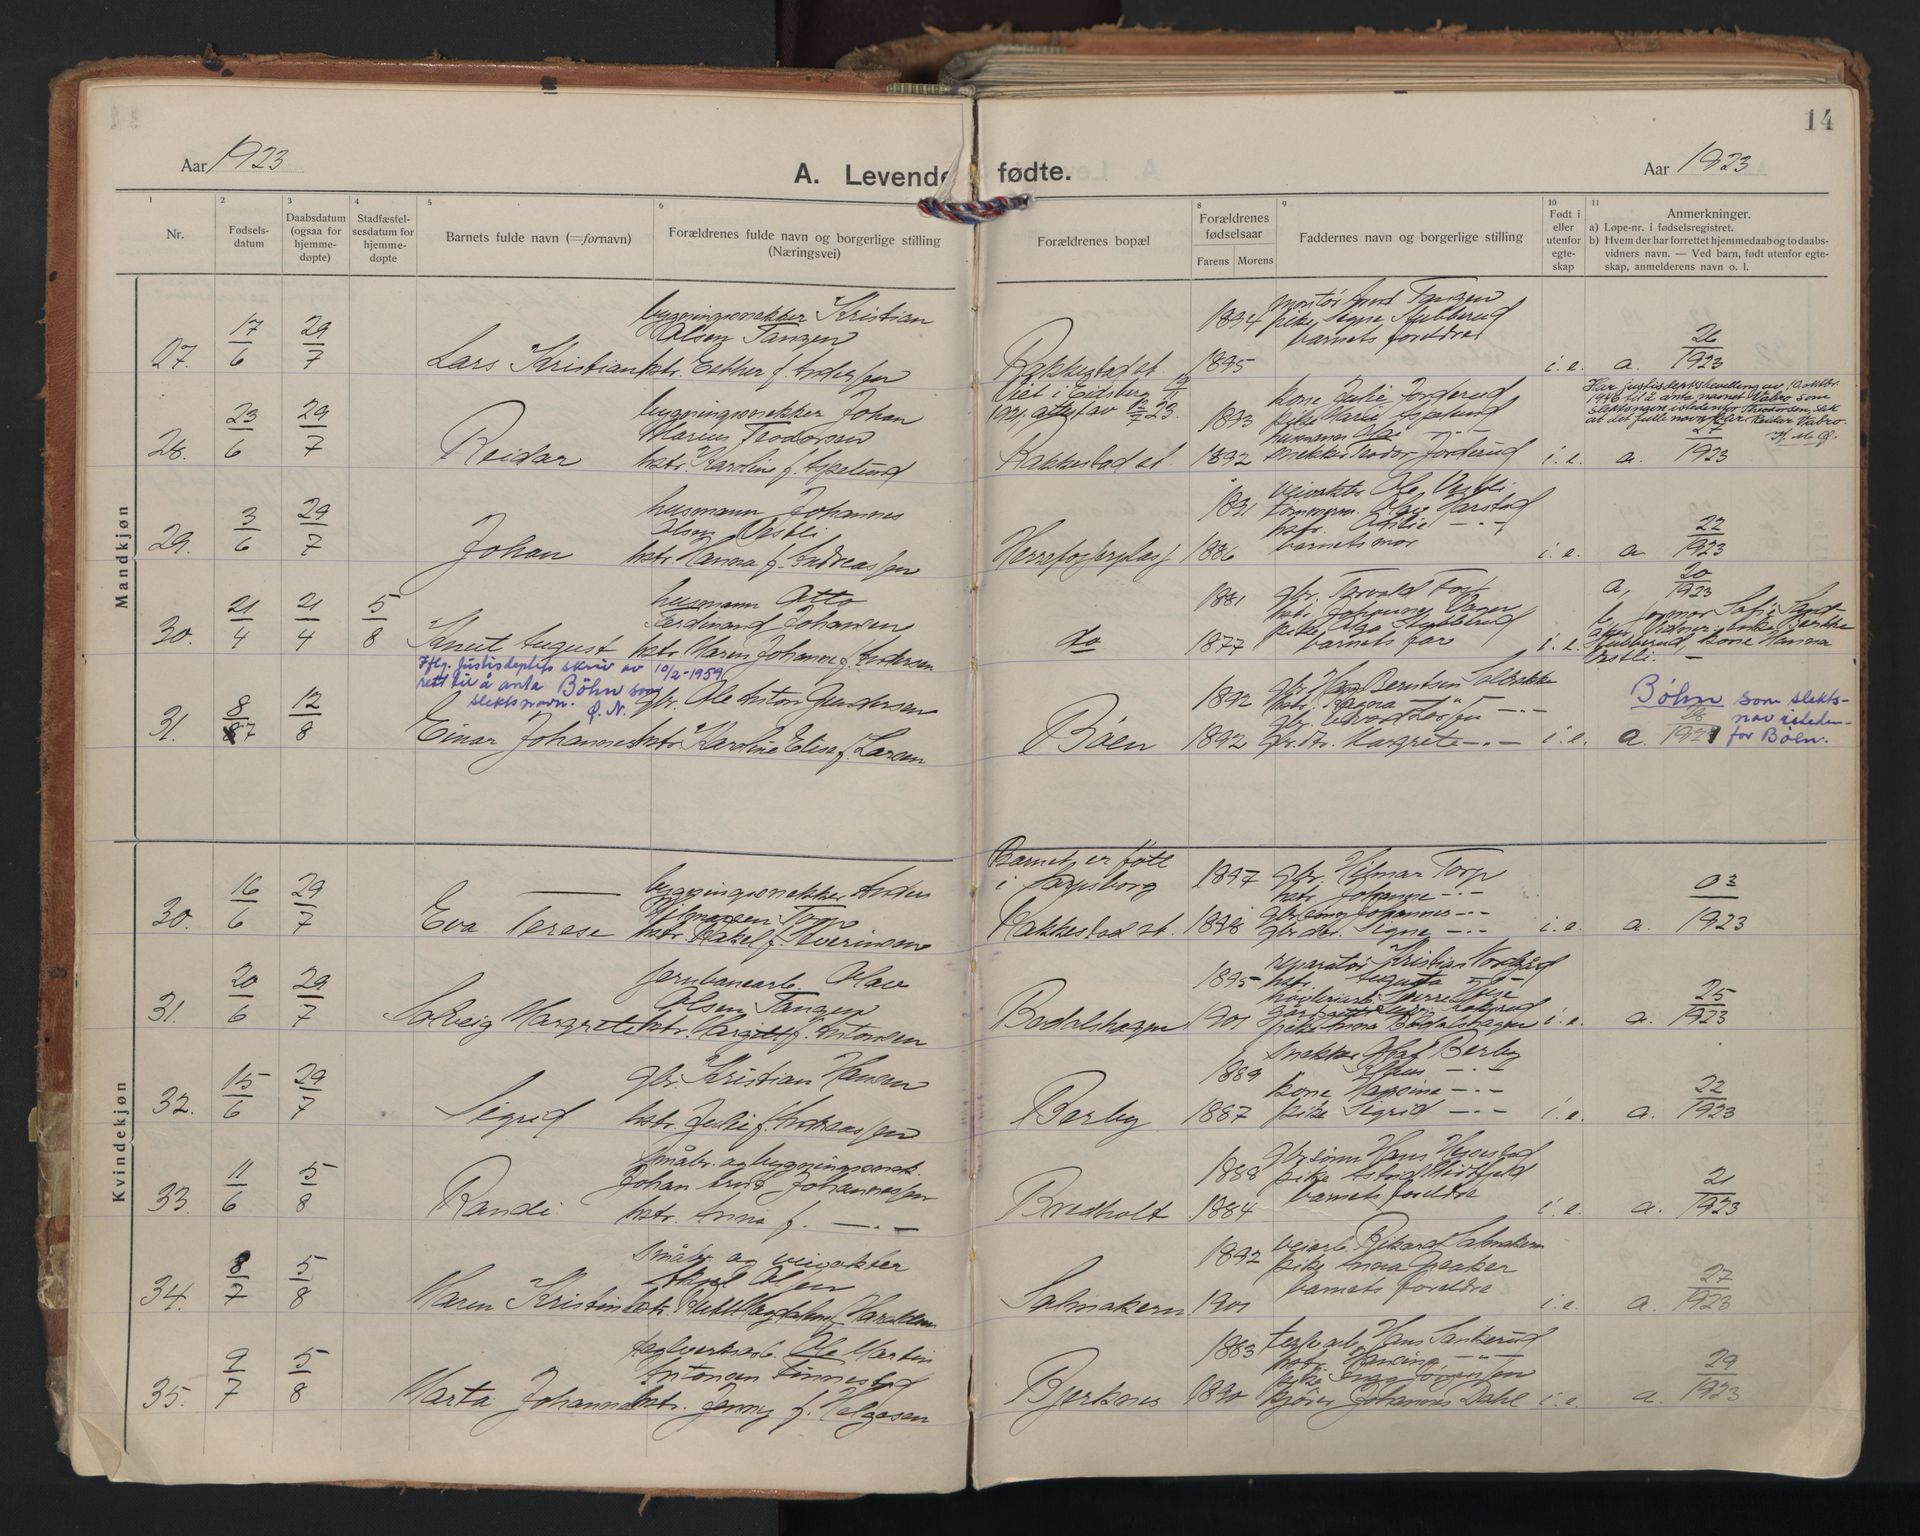 14
Aar 1923
A. Levende fødte.
Aar 1923
1 2 3 4 5 6 8 9 10 11
Nr.
Fødsels-
datum
Daabsdatum
(ogsaa for
hjemme-
døpte)
Stadfæstel-
sesdatum for
hjemme-
døpte
Barnets fulde navn (=fornavn)
Forældrenes fulde navn og borgerlige stilling
(Næringsvei)
Forældrenes bopæl
Forældrenes
fødselsaar
Farens Morens
Faddernes navn og borgerlige stilling
Født i
eller
utenfor
egte-
skap
Anmerkninger.
a) Løpe-nr. i fødselsregistret.
b) Hvem der har forrettet hjemmedaab og to daabs-
vidners navn. — Ved barn, født utenfor egte-
skap, anmelderens navn o. l.
Mandkjøn
27. 17/6 29/7 Lars Kristian
bygningssnekker Kristian
Olsen Tangen
hstr. Esther f. Andersen
Rakkestad st.
1894 1895
montør Arnt Tangen
pike Signe Stubberud
barnets foreldre
i.e. a. 26/1923
28. 23/6 29/7 Reidar
bygningssnekker Johan
Marius Teodorsen
hstr. Karoline f. Aspelund
Viet i Eidsberg
Rakkestad st.
1893 1892
kone Julie Jorderud
pike Marie Aspelund
snekker Teodor Jorderud
i.e. a. 27/1923
Har justisdeptsbevilling av 10 oktbr.
1946 til å anta navnet Vabro som
slektsnavn istedenfor Theodorsen, slik
at det fulle navn blir Reidar Vabro.
29. 3/6 29/7 Johan
husmann Johannes
Olsen Østli
hstr. Hanna f. Andreassen
1891 1886
veivokter Ole Østli
tømmerm. Olav Harstad
hstr. Otilie — " —
barnets mor
i.e. a. 22/1923
30. 21/4 21/4 5/8 Knut August
husmann Otto
Ferdinand Johansen
hstr. Maren Johanne f. Andersen
do
1881 1877
gbr. Torvald Torp
barnets far
i.e. a, 20/1923
b, jormor Sofie
kone Hanna
Østli. —
Iflg. Justisdeptets skriv av 10/2-1959
rett til å anta Bøhn som
slektsnavn. Ø. N.
31. 8/7 12/8 Einar Johannes
gbr. Ole Anton Gundersen
hstr. Karoline Elise f. Larsen
Bøen
1892 1892
gbr. dtr. Margrete — " —
i.e. a. 28/1923
Bøhn som slekts-
nav isteden-
for Bøen.
Kvindekjøn
30. 16/6 29/7 Eva Terese
bygningssnekker Anders
Hilmarsen Torp
hstr. Rakel f. Sverinsen
Barnet er født
i Sarpsborg
Rakkestad st.
1897 1898
gbr. Hilmar Torp
hstr. Johanne — " —
gbr.sønn Johannes — " —
gbr.dtr. Signe — " —
i.e. a. 03/1923
31. 20/6 29/7 Solveig Margrete
jernbanearb. Olav
Olsen Tangen
hstr. Margit f. Antonsen
Bodalshagen
1895 1901
reparatør Kristian Nordgård
hstr. Augusta — " —
pike Anna Bodalshagen
i.e. a. 25/1923
32. 15/6 29/7 Sigrid
gbr. Kristian Hansen
hstr. Julie f. Andreassen
Berby
1889 1887
snekker Olaf Berby
kone Hansine — " —
pike Sigrid — " —
i.e. a. 22/1923
33. 11/6 5/8 Randi
småbr. og bygningssnek.
Johan Arnt Johannessen
hstr. Anna f. — " —
Bredholt
1888 1884
gbr.sønn Hans
pike Astrid
barnets foreldre
i.e. a. 21/1923
34. 8/7 5/8 Maren Kristine
småbr. og veivokter
Aksel Olsen
hstr. Ruth Magdalene f. Haraldsen
Salmakern
1892 1901
veiarb. Rikard Salmakern
pike Anna Greaker
barnets foreldre
i.e. a. 27/1923
35. 9/7 5/8 Marta Johanne
teglverksarb. Ole Martin
Antonsen Finnestad
hstr. Jenny f. Helgesen
Bjerknes
1883 1890
teglv.arb. Hans Sankerud
hstr. Hansine — " —
pike Inga Jørgensen
kjører Johannes Dahl
i.e. a. 29/1923